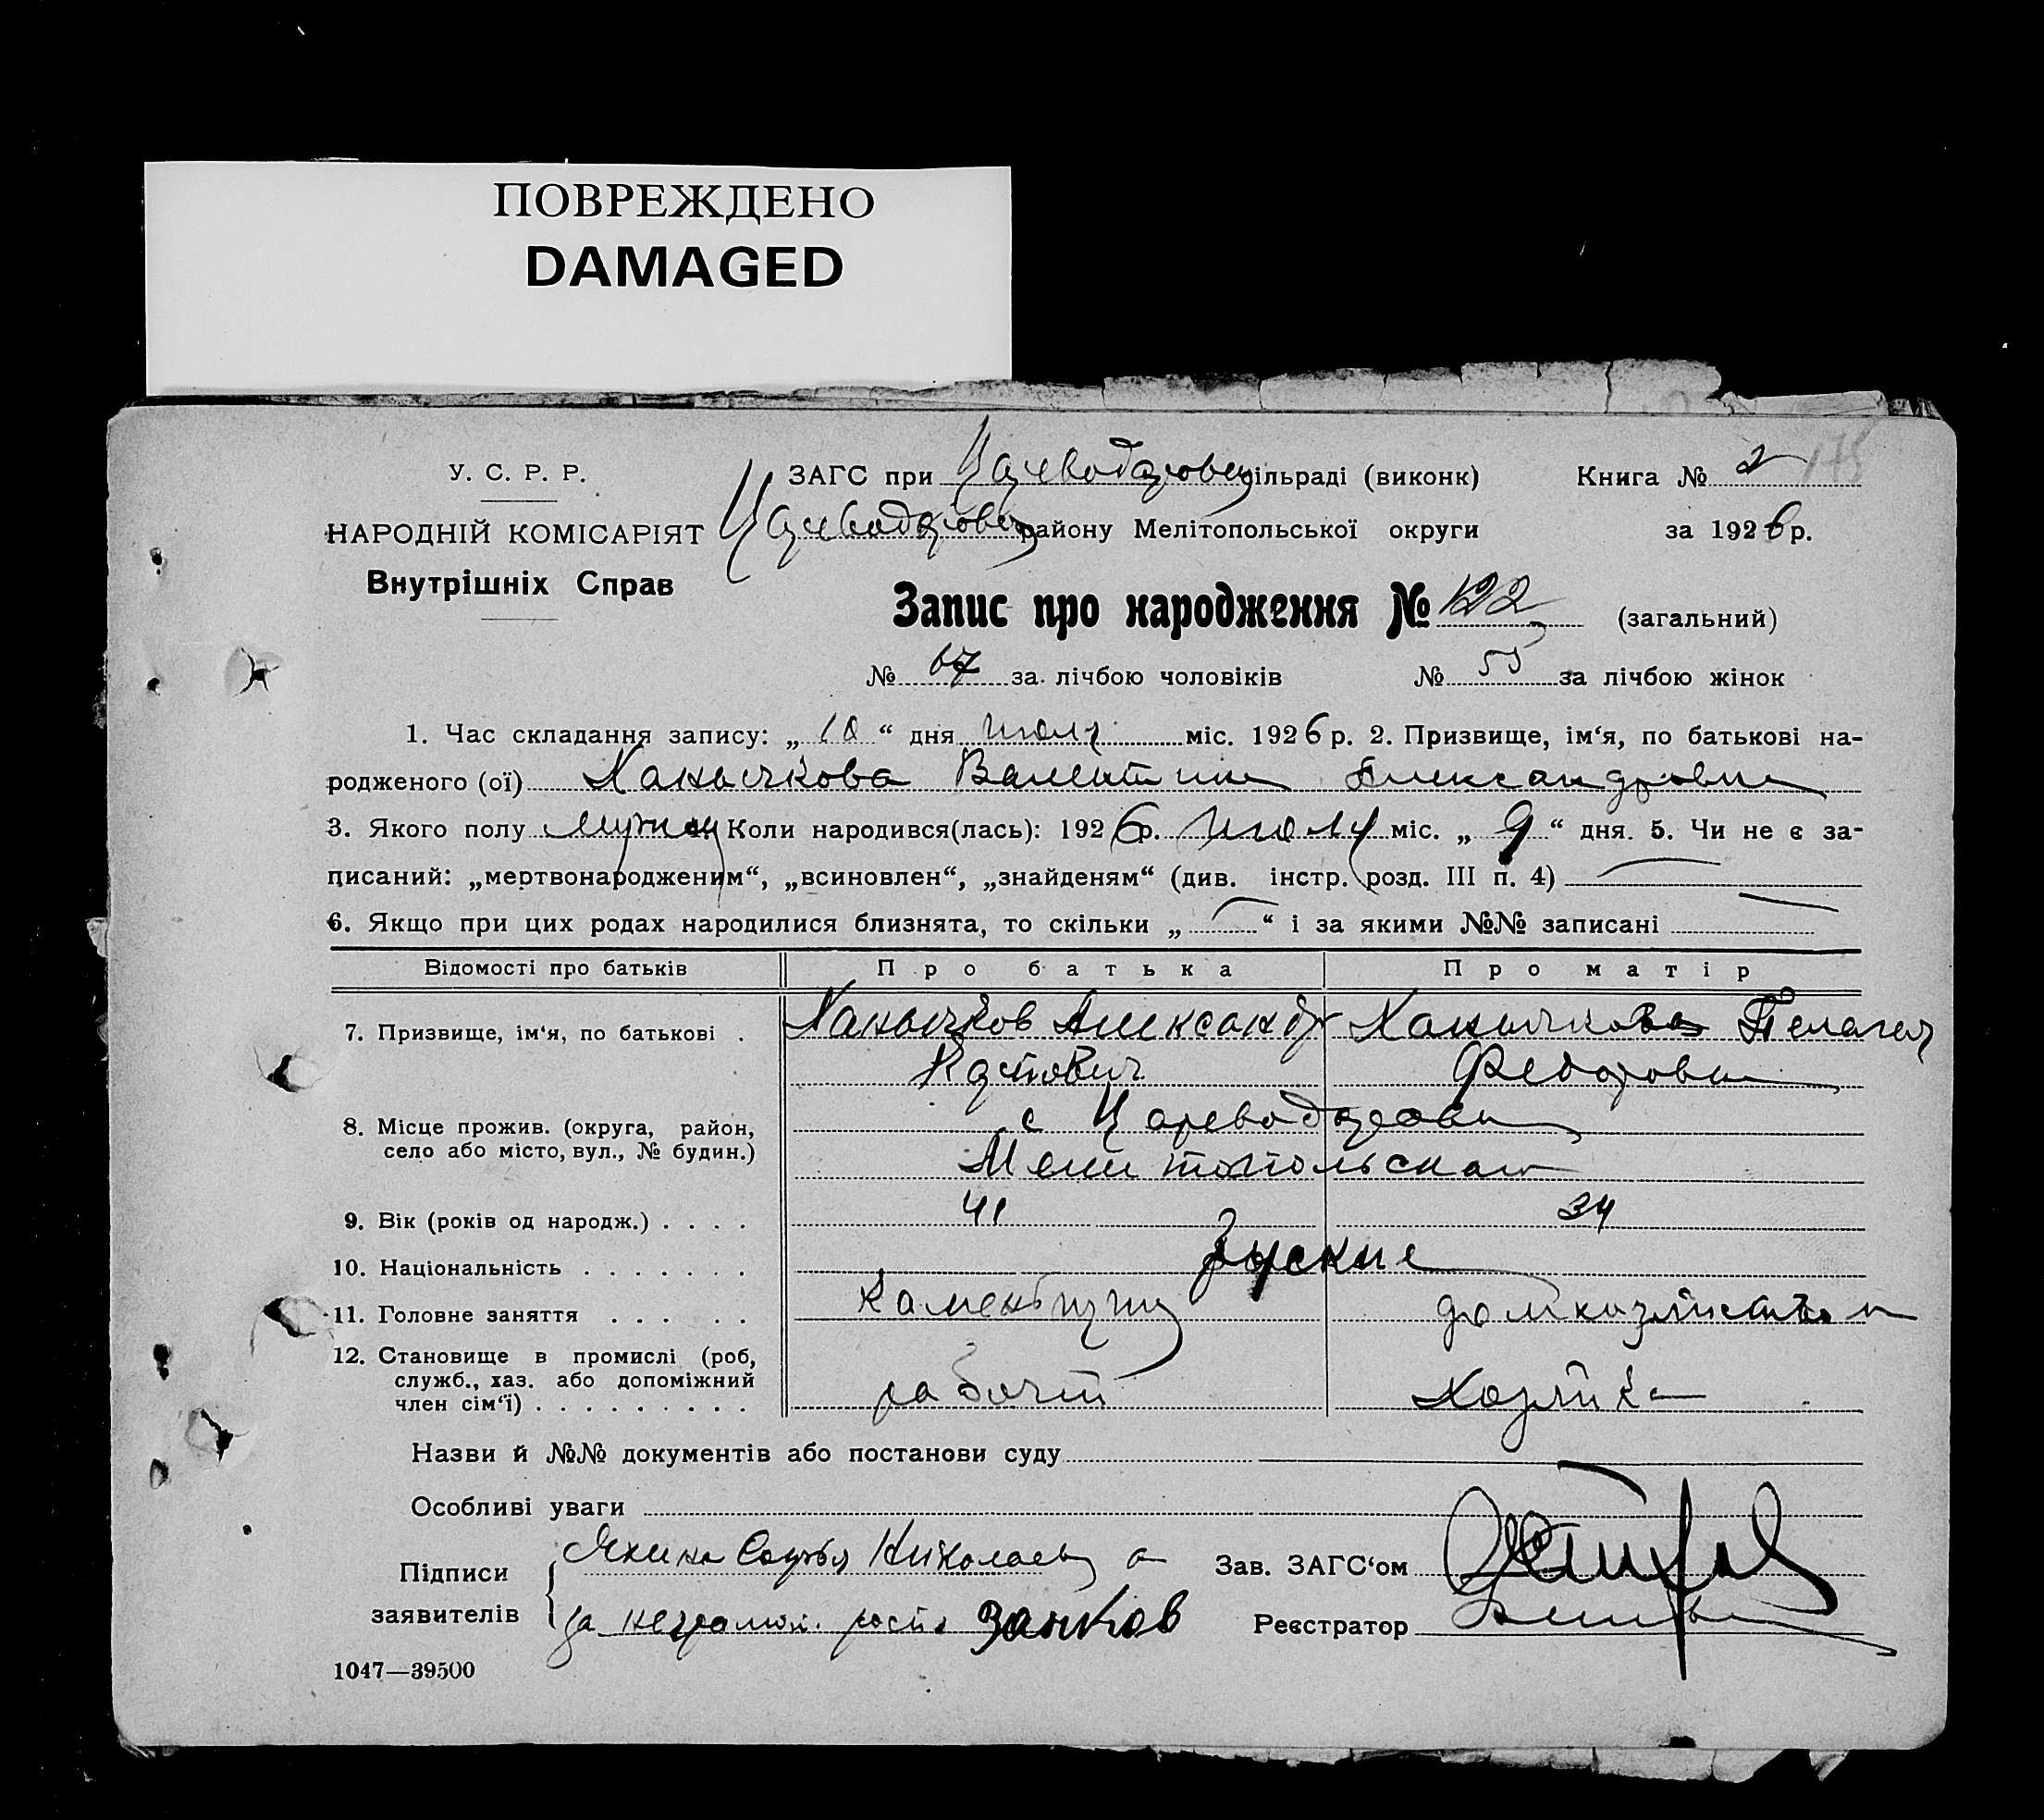 ПОВРЕЖДЕНО
DAMAGED
У. С. Р. Р.
НАРОДНІЙ КОМІСАРІЯТ
Внутрішніх Справ
ЗАГС при сільраді (виконк)
Книга № 2 175
району Мелітопольської округи
за 1926 р.
Запис про народження № 122 (загальний)
№ 67 за лічбою чоловіків № 55 за лічбою жінок
1. Час складання запису: „ 10 “ дня июля міс. 1926 р. 2. Призвище, ім‘я, по батькові на-
родженого (ої) Ханычкова Валентина Александровна
3. Якого полу 4. Коли народився(лась): 1926 р. июля міс. „ 9 “ дня. 5. Чи не є за-
писаний: „мертвонародженим“, „всиновлен“, „знайденям“ (див. інстр. розд. III п. 4)
6. Якщо при цих родах народилися близнята, то скільки „ “ і за якими №№ записані
Відомості про батьків Про батька Про матір
7. Призвище, ім‘я, по батькові . Ханычков Александр Ханычкова Пелагея
Федоровна
8. Місце прожив. (округа, район, с Цареводаровка
село або місто, вул., № будин.)
9. Вік (років од народж.) . . . . 41 34
10. Національність . . . . . . . русские
11. Головне заняття . . . . .
12. Становище в промислі (роб,
служб., хаз. або допоміжний рабочий хозяйка
член сім‘ї) . . . . . . . . .
Назви й №№ документів або постанови суду
Особливі уваги
Підписи
заявителів
Софья Николаевна
за неграмотн. росп. Занков
Зав. ЗАГС‘ом
Реєстратор
1047—39500